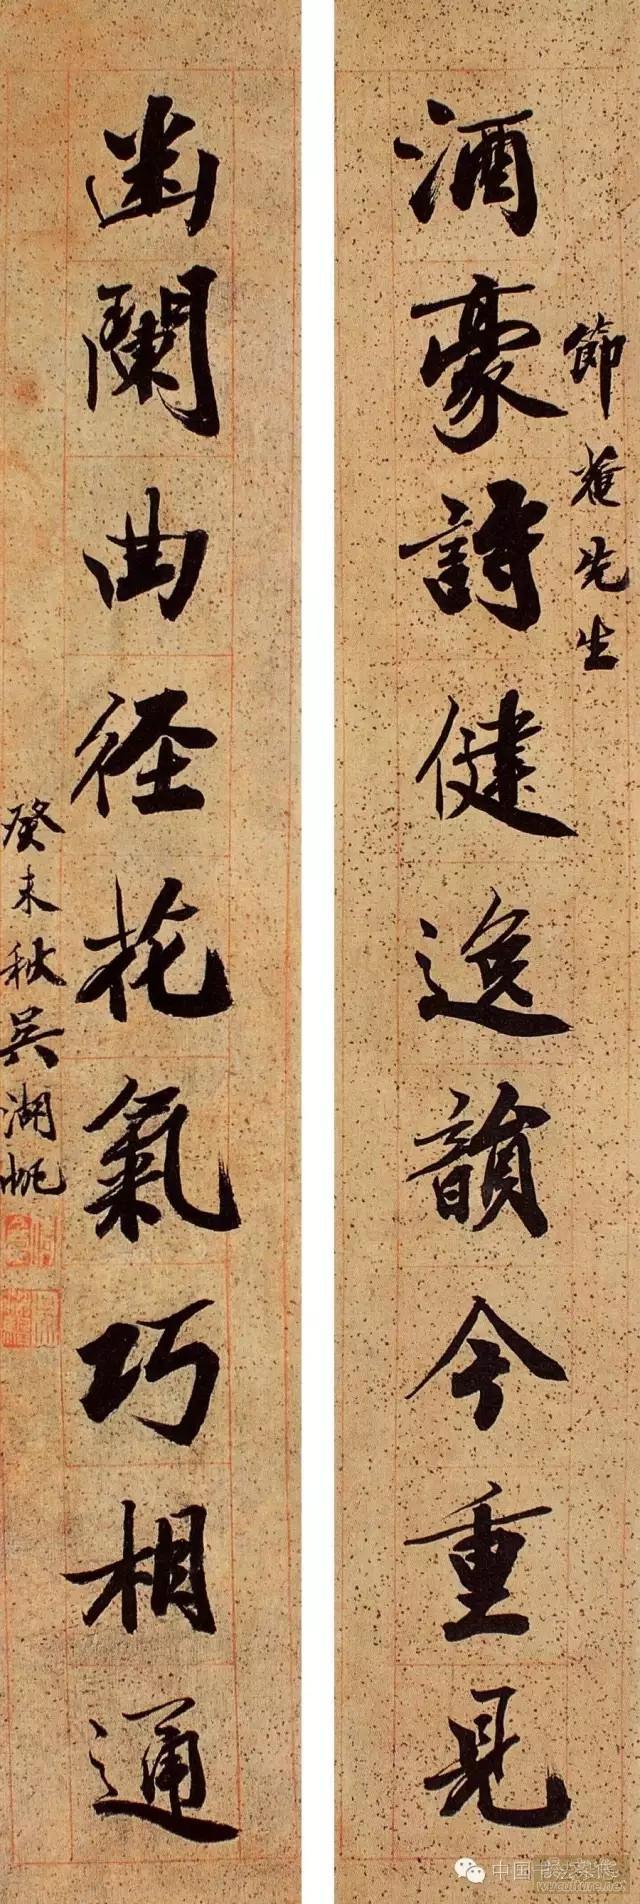 節庵先生
酒豪詩健逸韻今重見
幽闌曲径花氣巧相通
癸未秋吳湖帆
中国书法